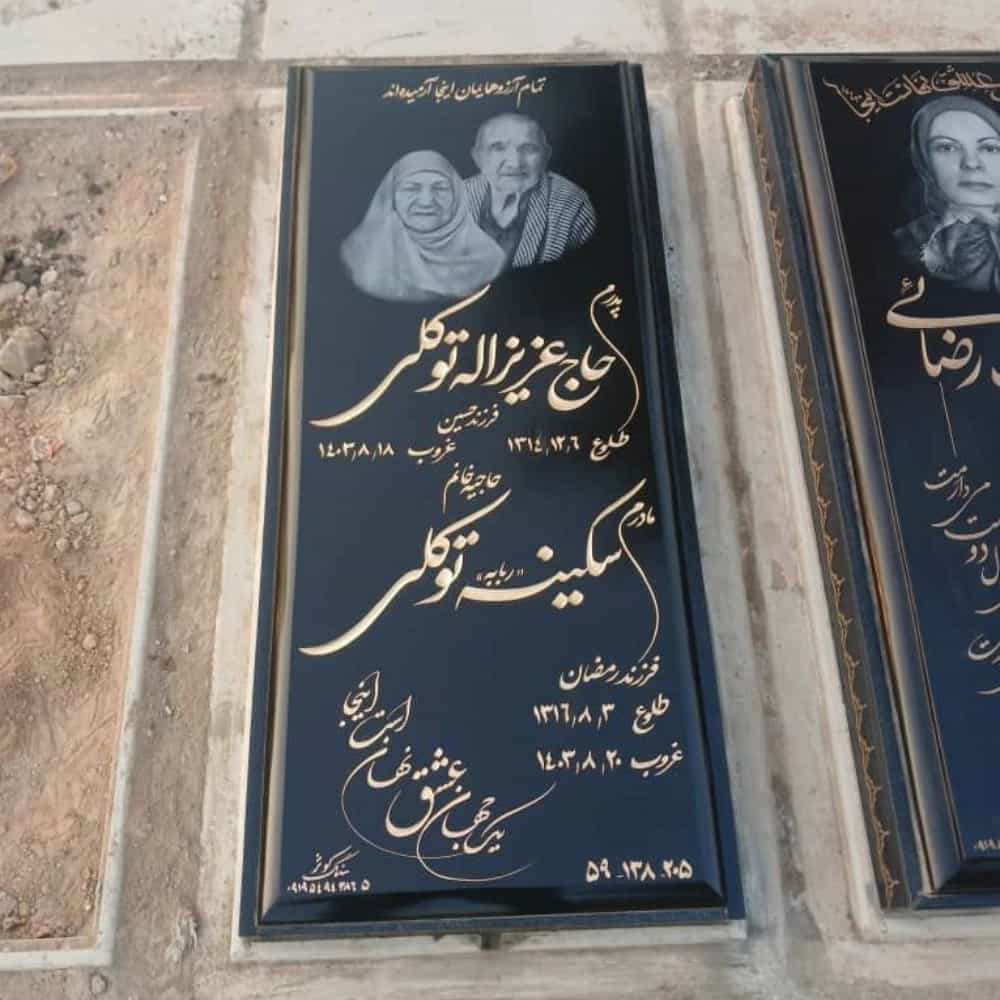 تمام آرزوهایمان اینجا آرمیده‌اند
پدرم
حاج عزیزاله توکلی
فرزند حسین
طلوع ۱۳۱۴٫۱۲٫۶ غروب ۱۴۰۳٫۸٫۱۸
حاجیه خانم
مادرم
سکینه «ربابه» توکلی
فرزند رمضان
طلوع ۱۳۱۶٫۸٫۳
غروب ۱۴۰۳٫۸٫۲۰
یک جهان عشق نهان است اینجا
۵۹-۱۳۸-۲۰۵
سنگ کوثر
۰۹۱۹۵۴۹۴۳۸۶۵
عشق نهان است اینجا
رضائی
می‌دارمت